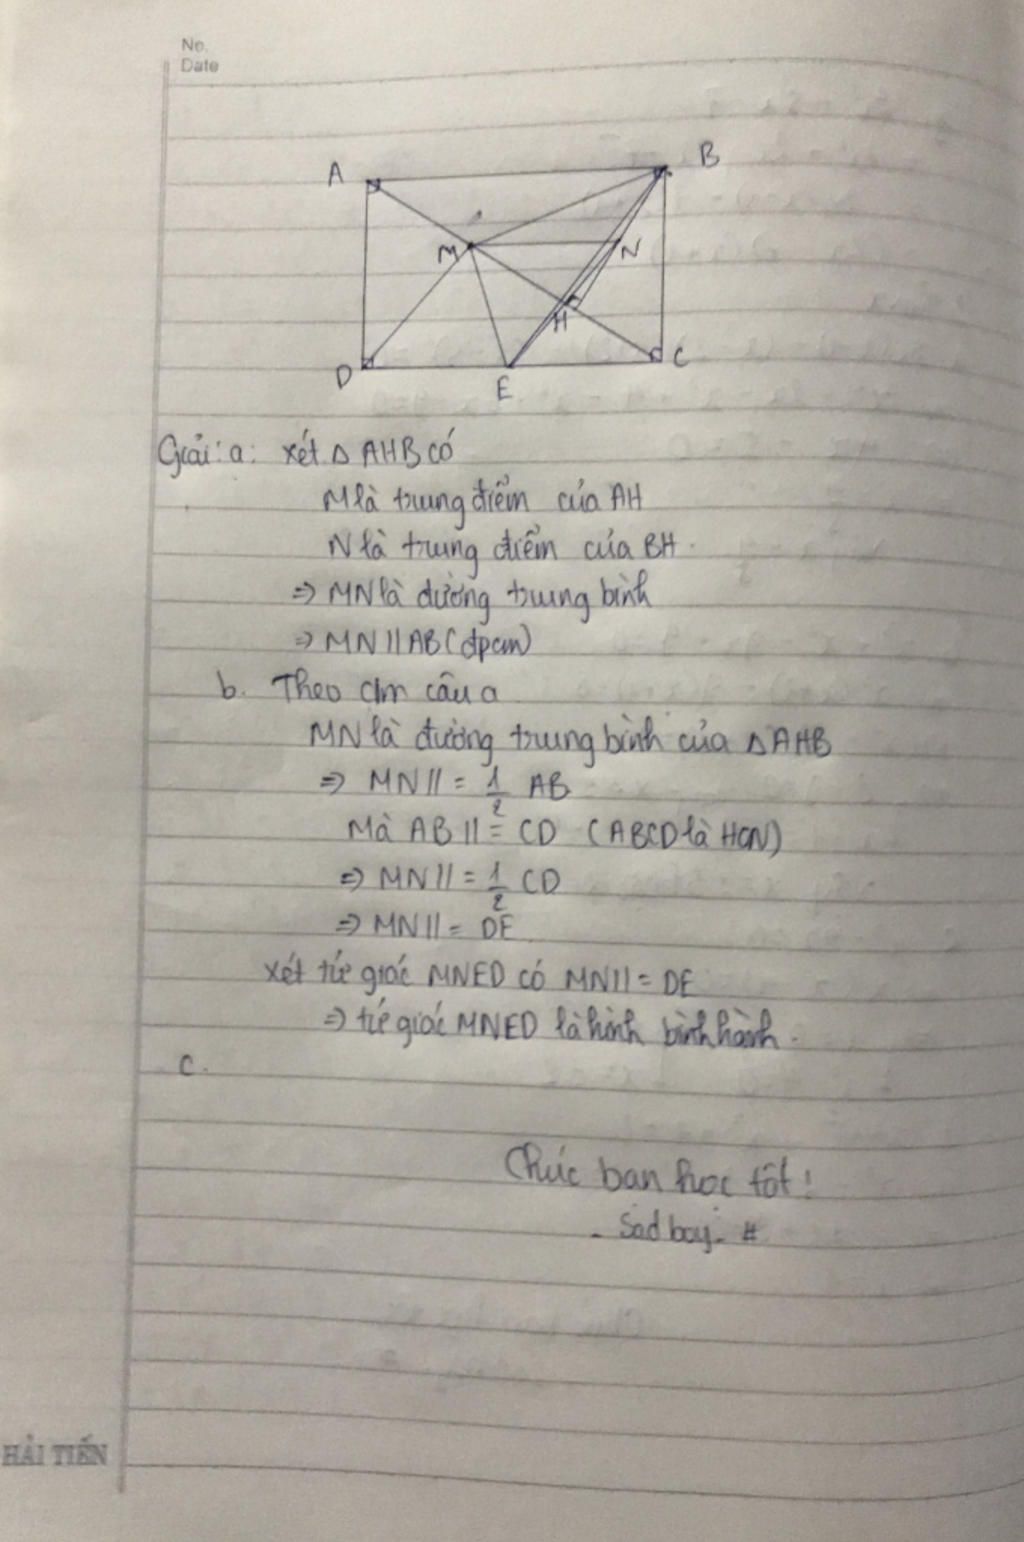 No.
Date
A
B
M
N
H
D
E
C
Giải: a: xét Δ AHB có
M là trung điểm của AH
N là trung điểm của BH.
⇒ MN là đường trung bình
⇒ MN // AB (đpcm)
b. Theo cm câu a
MN là đường trung bình của Δ AHB
⇒ MN // = 1/2 AB
Mà AB // = CD (ABCD là HCN)
⇒ MN // = 1/2 CD
⇒ MN // = DE
xét tứ giác MNED có MN // = DE
⇒ tứ giác MNED là hình bình hành.
c.
Chúc bạn học tốt!
- Sad boy - #
HẢI TIẾN